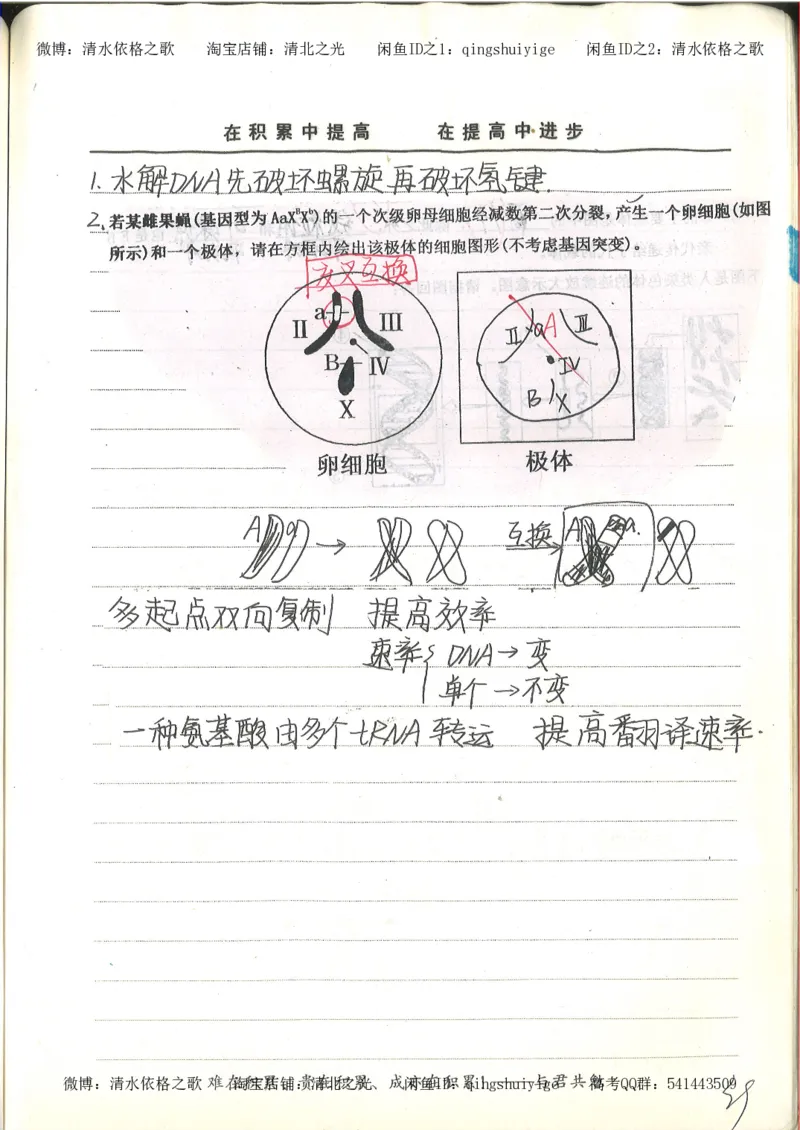 微博：清水依格之歌 淘宝店铺：清北之光 闲鱼ID之1：qingshuiyige 闲鱼ID之2：清水依格之歌
在积累中提高 在提高中进步
1. 水解DNA先破坏螺旋再破坏氢键.
2、若某雌果蝇(基因型为AaXᴮXᵇ)的一个次级卵母细胞经减数第二次分裂,产生一个卵细胞(如图
所示)和一个极体，请在方框内绘出该极体的细胞图形(不考虑基因突变)。
交叉互换
a
II III
B IV
X
II a A III
IV
B X
卵细胞 极体
A a → 互换 A a.
多起点双向复制 提高效率
速率 DNA→变
单个→不变
一种氨基酸由多个tRNA转运 提高翻译速率.
微博：清水依格之歌 淘宝店铺：清北之光 闲鱼ID：qingshuiyige 高考QQ群：541443509